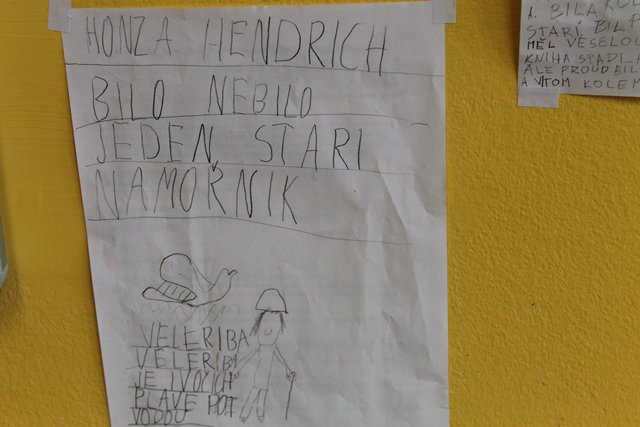 HONZA HENDRICH
BILO NEBILO
JEDEN STARI
NAMOŘNIK
VELERIBA
VELERIBA
JE IVOČICH
PLAVE POT
VODOU
A BILA
STARÍ BIL
MĚL VESELOU
KNIHA SPADLA
ALE PROUD BIL
A VTOM KOLEM